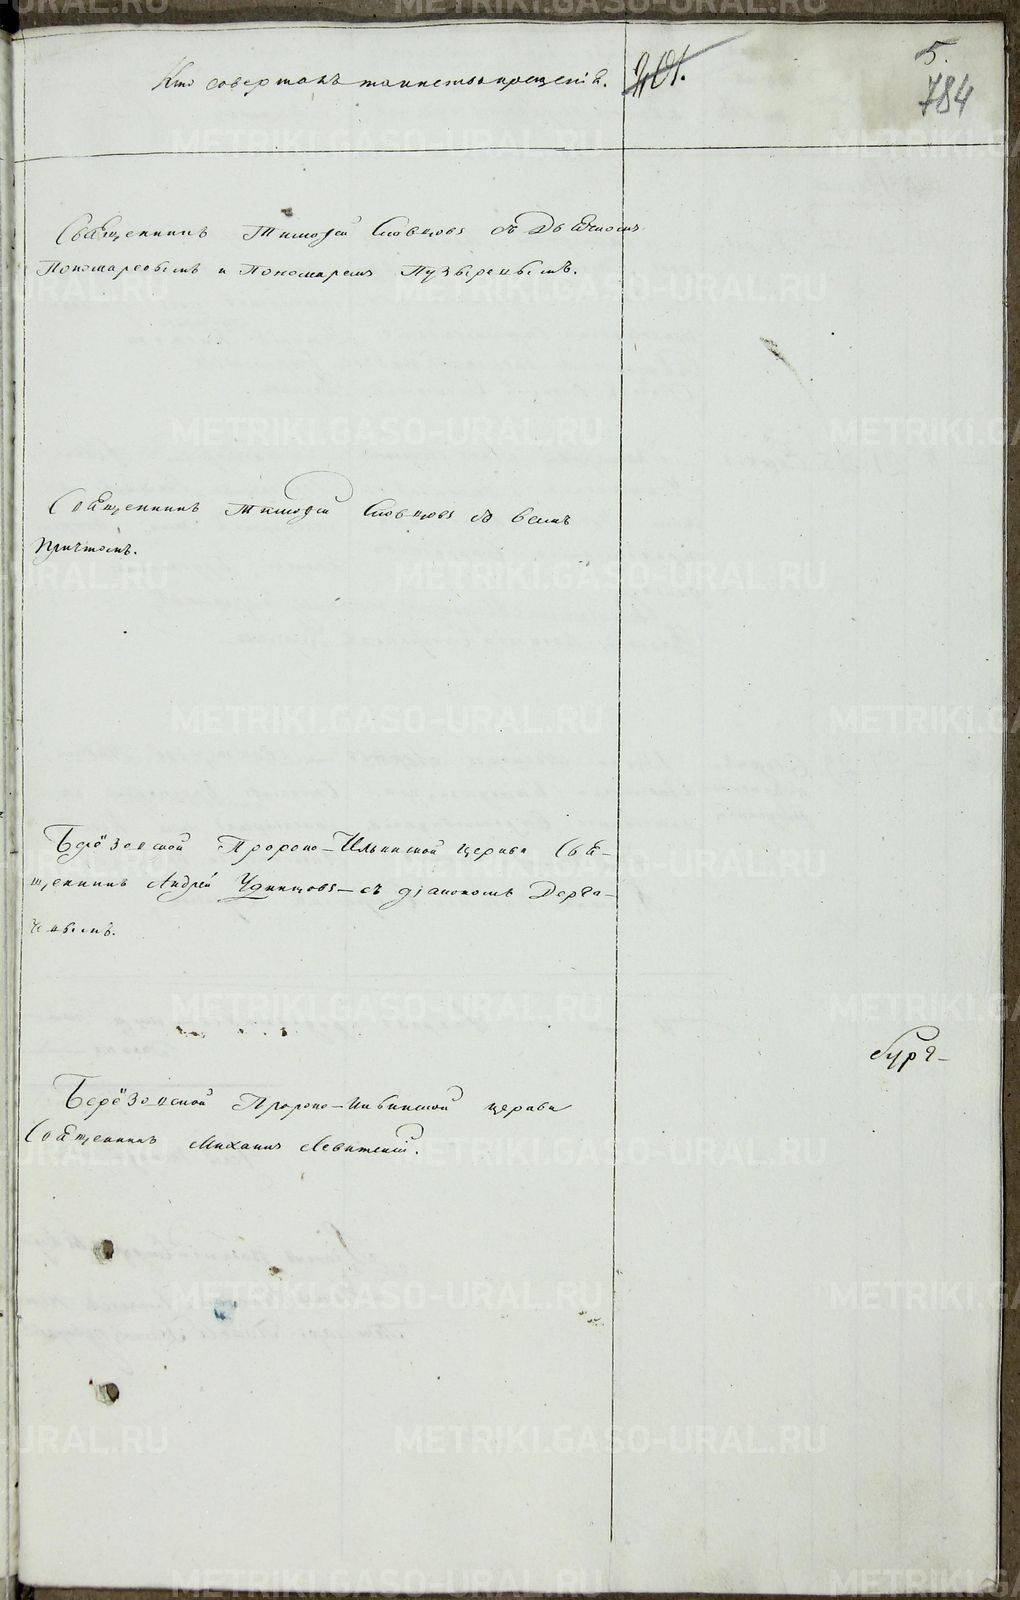 Кто совершалъ таинство крещенія.
401.
5.
784
Священникъ Тимофей Словцовъ съ Дьячкомъ
Пономаревымъ и Пономаремъ Пузыревымъ.
Священникъ Тимофей Словцовъ со всемъ
Причтомъ.
Берёзовской Пророко-Ильинской церкви Свя-
щенникъ Андрей Удинцовъ – съ діакономъ Дерга-
чевымъ.
Берёзовской Пророко-Ильинской церкви
Священникъ Михаилъ Левитскій.
METRIKI.GASO-URAL.RU